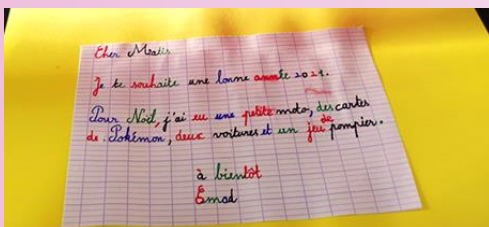 Cher Mealis
Je te souhaite une bonne année 2021.
Pour Noël, j'ai eu une petite moto, des cartes
de Pokémon, deux voitures et un jeu de pompier.
à bientôt
Emad